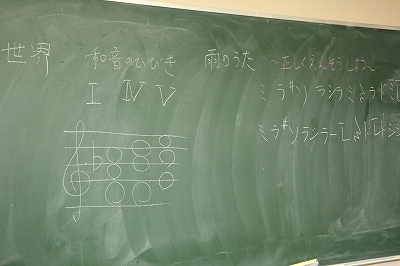 世界
和音のひびき
I IV V
雨のうた ～正しくえんそうしよう～
ミラ#ソラシラミ
ミラ#ソラシラー